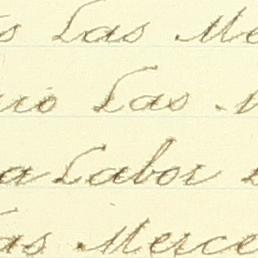 s Las Me
rio Las M
a Labor
as Merce